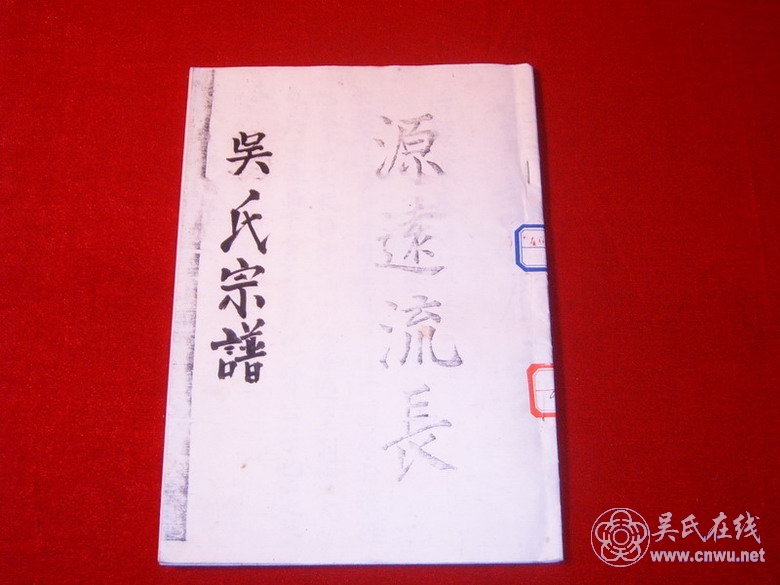 源遠流長
吳氏宗譜
吴氏在线
www.cnwu.net